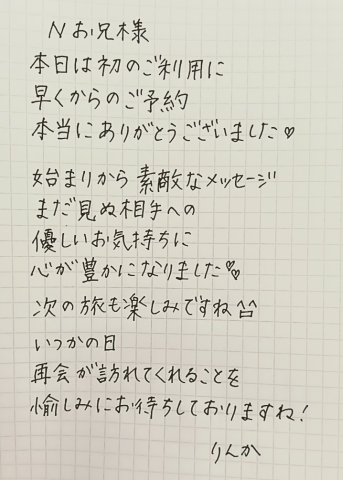 Nお兄様
本日は初のご利用に
早くからのご予約
本当にありがとうございました♡
始まりから素敵なメッセージ
まだ見ぬ相手への
優しいお気持ちに
心が豊かになりました♡♡
次の旅も楽しみですね^^
いつかの日
再会が訪れてくれることを
愉しみにお待ちしておりますね!
りんか